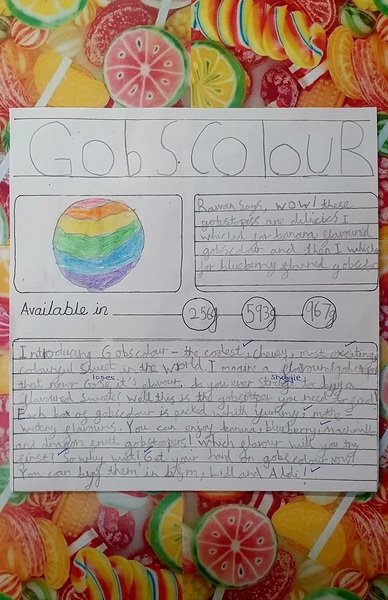 GobScolouR
Raman says, WOW! these
gobstopers are delicies I
whished for banana flavoured
gobscolour and then I whished
for blueberry flavored gobscolour
Available in 256g 593g 967g
Introducing Gobscolour - the coolest, chewy, most exciting,
colourful sweet in the world. I magine a flavour gobstoper
loses struggle
that never it's flavour. Do you ever for
flavoured sweets? Well this is the gobstoper you need to
Each box of gobscolour is packed with yummy,
watery flavours. You can enjoy banana, blueberry, Marshmallow
and dragon fruit gobstopers! Which flavour will you try
first? So why wait! Get your hand on gobscolour now!
You can buy them in b&m, Lidl and Aldi!